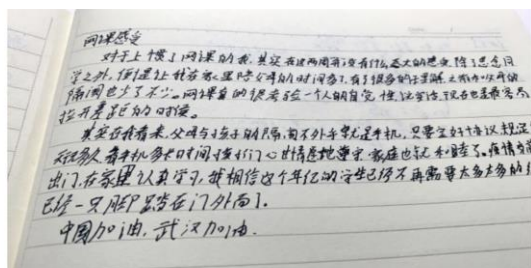 网课感受
对于上惯了网课的我,其实在这两周并没有什么太大的感受,除了思念同
学之外,便是让我在家里陪父母的时间多了,有了很多的
隔阂也少了不少。网课真的很考验一个人的自觉性,说实话,现在也是最容易
拉开差距的时候。
其实在我看来,父母与孩子的隔阂不外乎就是手机,只要定好协议,规定
天玩多久看手机多长时间,孩子们心甘情愿地遵守,家庭也就和睦了。疫情
出门,在家里认真学习,我相信这个年纪的学生已经不再需要太多太多的
已经一只脚踏在门外面了。
中国加油,武汉加油.